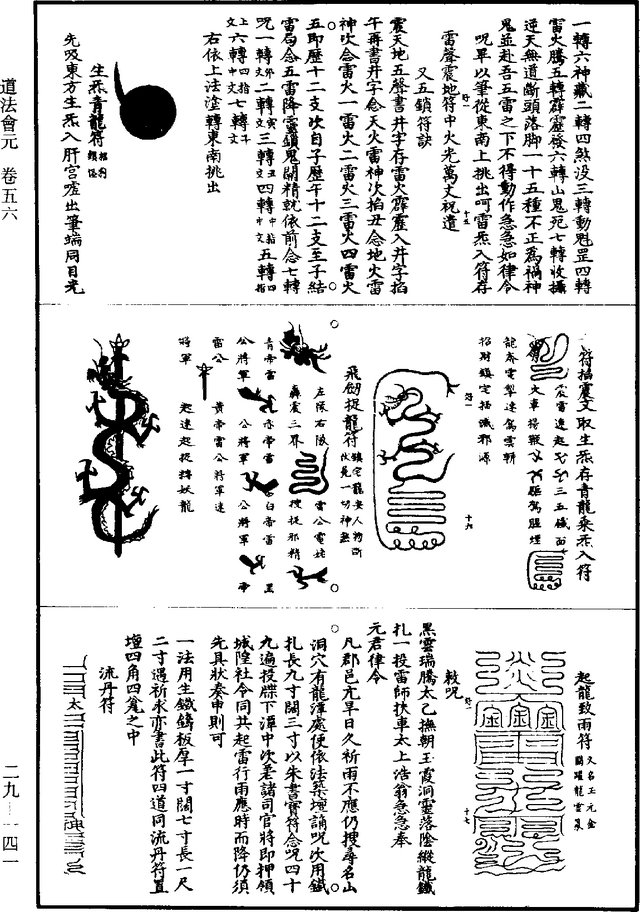 道法會元　卷五六
一轉六神藏二轉四煞没三轉動魁罡四轉
雷火騰五轉霹靂發六轉山鬼死七轉收攝
逆天無道斷頭落脚一十五種不正爲禍神
鬼並赴吾五雷之下不得動作急急如律令
呪畢以筆從東南上挑出呵雷炁入符存
雷聲震地符中火光萬丈祝遣
又五鎖符訣
震天地五聲書井字存雷火霹靂入井字掐
午再書井字念天火雷神次掐丑念地火雷
神次念雷火一雷火二雷火三雷火四雷火
五即歷十二支次自子歷午十二支至子結
雷局念五雷降靈鎖鬼關精就依前念七轉
呪一轉二轉三轉四轉五轉
六轉七轉
右依上法塗轉東南挑出
生炁青龍符
先吸東方生炁入肝宫噓出筆端同目光
符掐震文取生炁存青龍乘炁入符
震雷速起
三五鐵面
火車揚鞭
驅駕風煙
龍奔電掣速駕雲軿
招財鎮宅掃滅邪源
飛劒捉龍符
左隊右隊
雷公電姥
轟震三界
搜捉邪精
青帝雷公將軍
赤帝雷公將軍
白帝雷公將軍
黑帝雷公
黄帝雷公將軍速
將軍
起速起捉縛妖龍
起龍致雨符
敕呪
黑雲瑞騰太乙撫朝玉霞洞靈落陰縱龍鐵
扎一投雷師扶車太上浩翁急急奉
元君律令
凡郡邑亢旱日久祈雨不應仍搜尋名山
洞穴有龍潭處便依法築壇誦呪次用鐵
扎長九寸闊三寸以朱書寶符念呪四十
九遍投牒下潭中次差諸司官將即押領
城隍社令同共起雷行雨應時而降仍須
先具狀奏申則可
一法用生鐵鑄板厚一寸闊七寸長一尺
二寸遇祈求亦書此符四道同流丹符置
壇四角四瓮之中
流丹符
二九—一四一